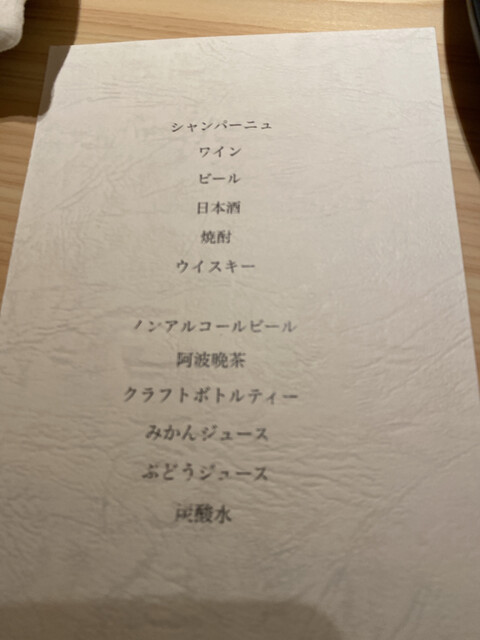 シャンパーニュ
ワイン
ビール
日本酒
焼酎
ウイスキー
ノンアルコールビール
阿波晩茶
クラフトボトルティー
みかんジュース
ぶどうジュース
炭酸水